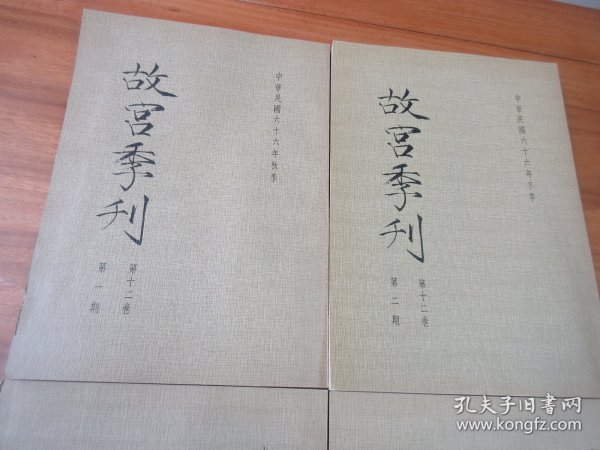 中華民國六十六年秋季
故宮季刊
第十二卷
第一期
中華民國六十六年冬季
故宮季刊
第十二卷
第二期
孔夫子旧书网
www.kongfz.com